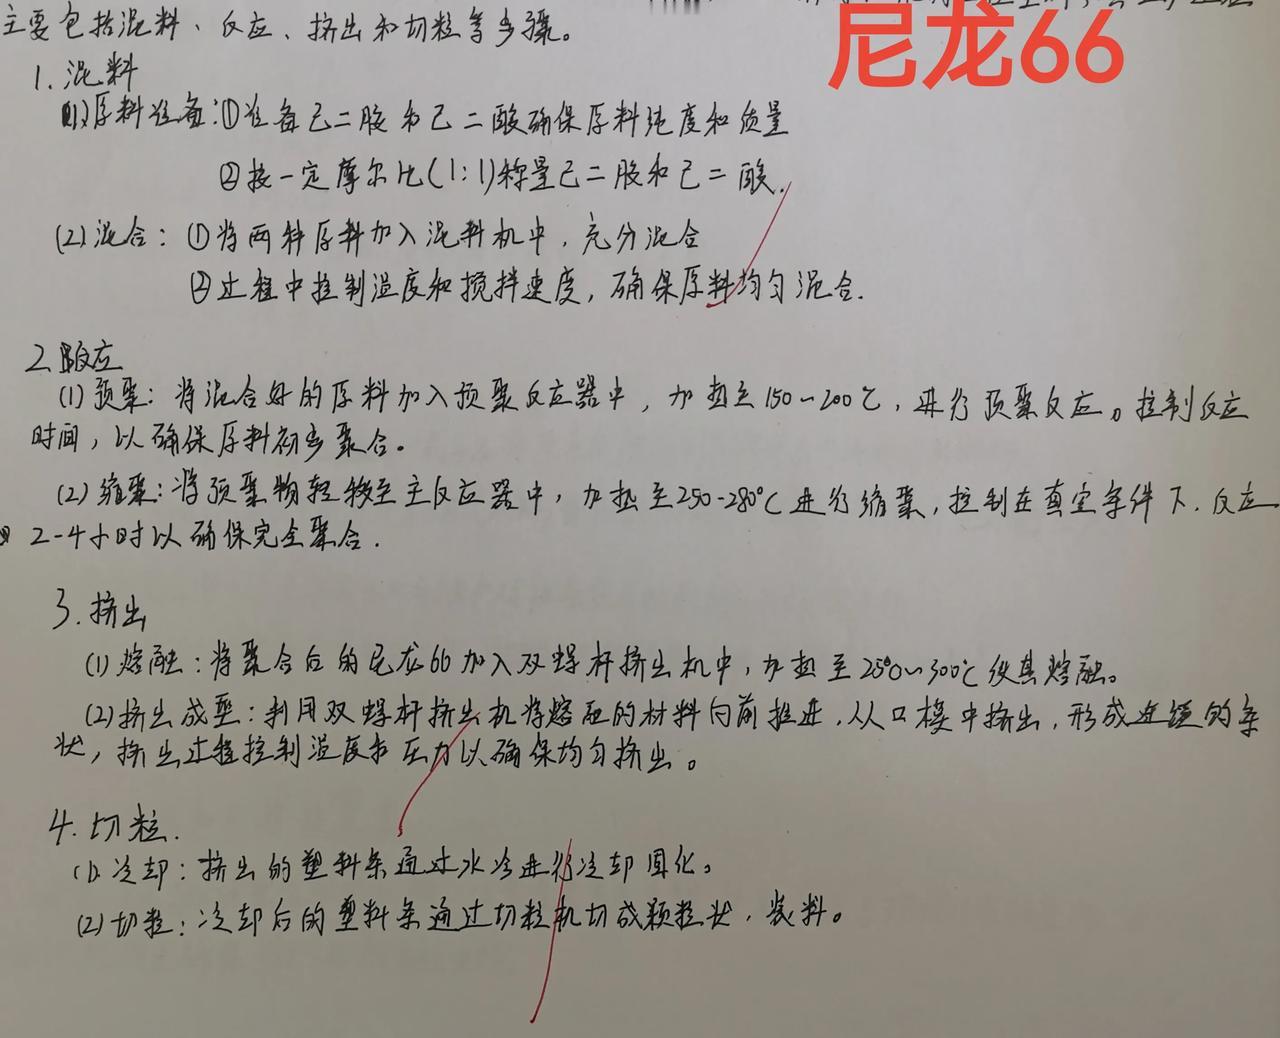 尼龙66
主要包括混料、反应、挤出和切粒等步骤。
1. 混料
(1)原料准备:①准备己二胺和己二酸确保原料纯度和质量
②按一定摩尔比(1:1)称量己二胺和己二酸.
(2)混合:①将两种原料加入混料机中,充分混合
②过程中控制温度和搅拌速度,确保原料均匀混合.
2.反应
(1)预聚:将混合好的原料加入预聚反应器中,加热至150~200℃,进行预聚反应。控制反应
时间,以确保原料初步聚合。
(2)缩聚:将预聚物转移至主反应器中,加热至250-280℃进行缩聚,控制在真空条件下.反应
2-4小时以确保完全聚合.
3.挤出
(1)熔融:将聚合后的尼龙66加入双螺杆挤出机中,加热至250~300℃使其熔融。
(2)挤出成型:利用双螺杆挤出机将熔融的材料向前推进,从口模中挤出,形成连续的条
状,挤出过程控制温度和压力以确保均匀挤出。
4.切粒.
(1)冷却:挤出的塑料条通过水冷进行冷却固化。
(2)切粒:冷却后的塑料条通过切粒机切成颗粒状,装料。